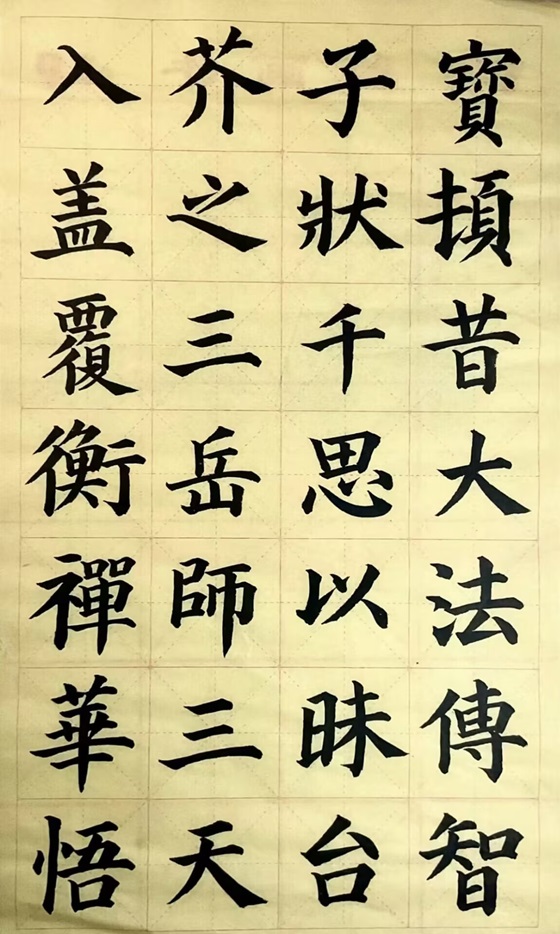 入芥子寶
盖之狀頓
覆三千昔
衡岳思大
禪師以法
華三昧傳
悟天台智